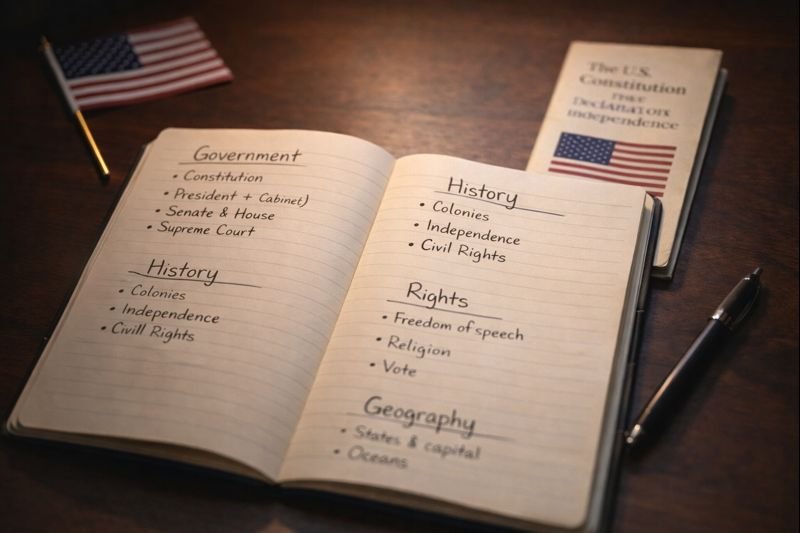 Government
• Constitution
• President + Cabinet)
• Senate & House
• Supreme Court
History
• Colonies
• Independence
• Civill Rights
History
• Colonies
• Independence
• Civil Rights
Rights
• Freedom of speech
• Religion
• Vote
Geography
• States & capital
• Oceans
The U.S.
Constitution
Independence